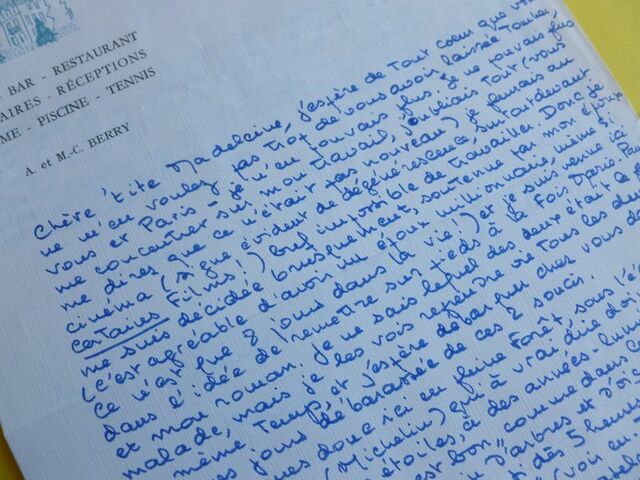 BAR - RESTAURANT
AIRES - RÉCEPTIONS
ME - PISCINE - TENNIS
A. et M.-C. BERRY
Chère 'tite Madeleine, j'espère de tout coeur que
ne m'en voulez pas trop de vous avoir laissée tomber
vous et Paris - je n'en pouvais plus, je ne pouvais plus
me concentrer sur mon travail, j'oubliais tout (vous
me direz que ce n'était pas nouveau) je fumais au
cinéma (signe évident de dégénérescence surtout devant
certains films!) bref impossible de travailler. Donc je
me suis décidée brusquement, soutenue par mon
(c'est agréable d'avoir un époux millionnaire, même si
ce n'est que 8 jours dans la vie!) et je suis venue ici
dans l'idée de remettre sur pieds à la fois Dario
et mon roman. Je ne sais lequel des deux était le
malade, mais je les vois reprendre vie tous les deux
même temps et j'espère débarquer chez vous
jours débarassée de ces 2 soucis.
donc ici en pleine forêt, sous l'é
(Michelin) qui à vrai dire doi
étoiles, à des années-lum
est bon comme dans le
d'arbres et d'oi
dès 5 heures
(voir en